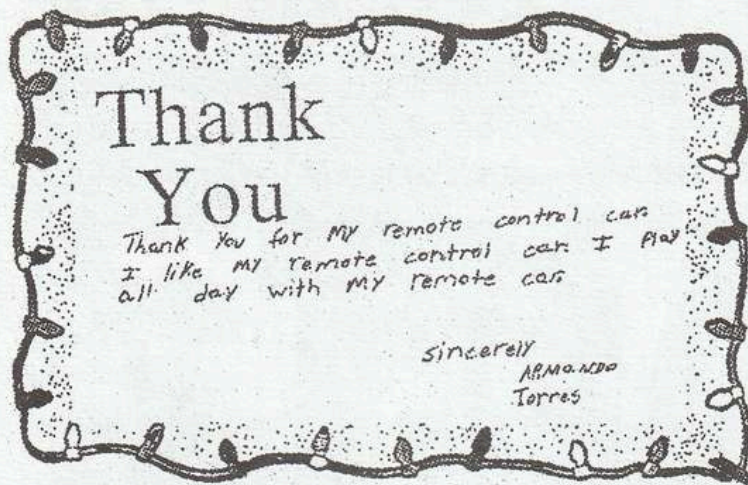 Thank
You
Thank You for my remote control car.
I like my remote control car. I Play
all day with my remote car.
sincerely
ARMANDO
Torres